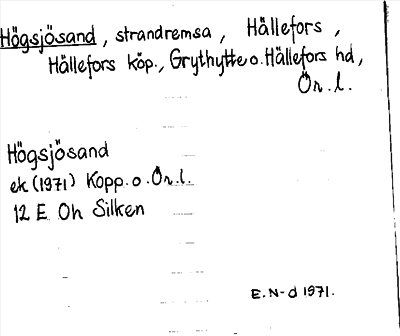 Högsjösand, strandremsa, Hällefors,
Hällefors köp., Grythytte o. Hällefors hd,
Ör. l.
Högsjösand
ek (1971) Kopp. o. Ör. l.
12 E Oh Silken
E. N-d 1971.